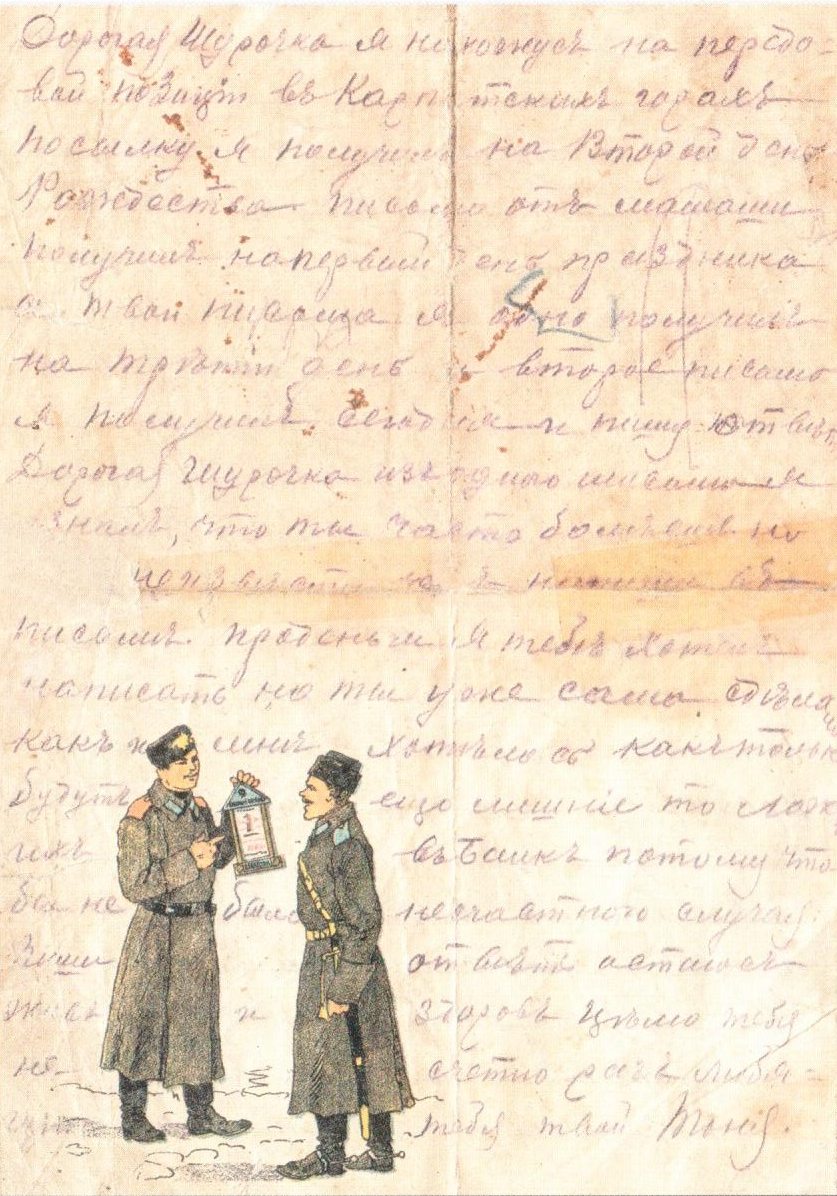 Дорогая Шурочка я нахожусь на передо-
вой позиціи въ Карпатскихъ горахъ
посылку я получилъ на Второй день
Рождества письмо отъ мамаши
получилъ на первый день праздника
а твои письма я одно получилъ
на третій день и второе письмо
я получилъ сегодня и пишу отвѣтъ
Дорогая Шурочка изъ одного письма я
зналъ, что ты часто болѣешь но
въ
письмѣ. про деньги я тебѣ хотелъ
написать но ты уже сама сдѣла
какъ мнѣ хотѣлось какъ только
будутъ еще лишніе то
ихъ въ Банкъ потому что
бы не было несчастного случая.
Пиши отвѣтъ остаюсь
живъ и здоровъ цѣлую тебя
не- счетно разъ любя-
щій тебя твой Тоня.
1